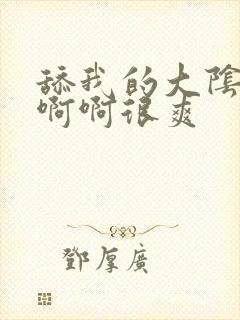 舔我的大陰
啊啊很爽
鄧厚廣